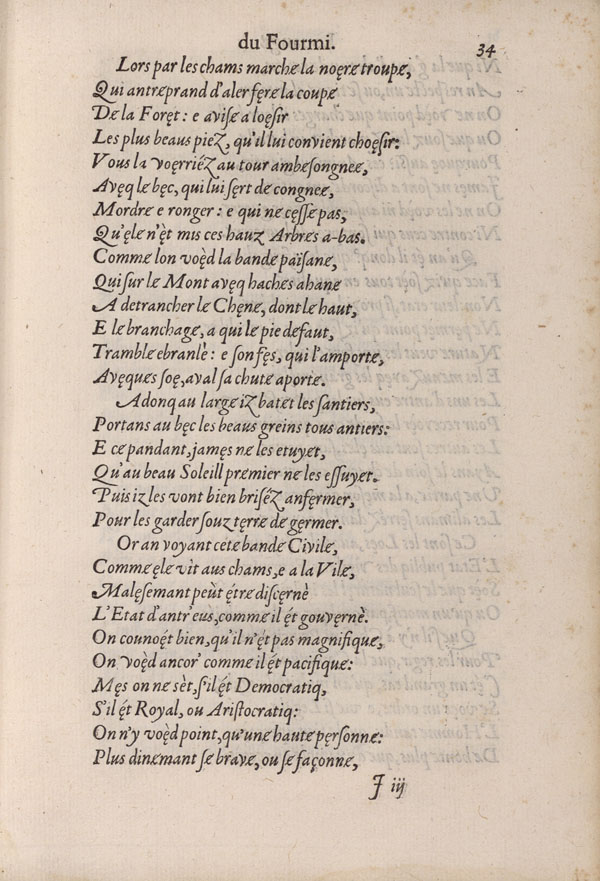 du Fourmi. 34
Lors par les chams marche la noęre troupe,
Qui antreprand d'aler fęre la coupe
De la Foręt: e aviſe a loęſir
Les plus beaus pieź, qu'il lui convient choęſir:
Vous la voęrriéz au tour ambeſongnee,
Avęq le bęc, qui lui ſęrt de congnee,
Mordre e ronger: e qui ne cęſſe pas,
Qu'ęle n'ęt mis ces hauz Arbres a-bas.
Comme lon voęd la bande païſane,
Qui ſur le Mont avęq haches ahane
A detrancher le Chęne, dont le haut,
E le branchage, a qui le pie defaut,
Tramble ebranlè: e ſon fęs, qui l'amporte,
Avęques ſoę, aval ſa chute aporte.
Adonq au large iz batet les ſantiers,
Portans au bęc les beaus greins tous antiers:
E ce pandant, jamęs ne les etuyet,
Qu'au beau Soleill premier ne les eſſuyet.
Puis iz les vont bien briſéz anfęrmer,
Pour les garder ſouz tęrre de gęrmer.
Or an voyant cete bande Civile,
Comme ęle vit aus chams, e a la Vile,
Malęſemant peùt ętre diſcęrnè
L'Etat d'antr'eus, comme il ęt gouvęrnè.
On counoęt bien, qu'il n'ęt pas magnifique,
On voęd ancor' comme il ęt pacifique:
Męs on ne sèt, ſ'il ęt Democratiq,
S'il ęt Royal, ou Ariſtocratiq:
On n'y voęd point, qu'une haute pęrſonne:
Plus dinemant ſe brave, ou ſe façonne,
J iij